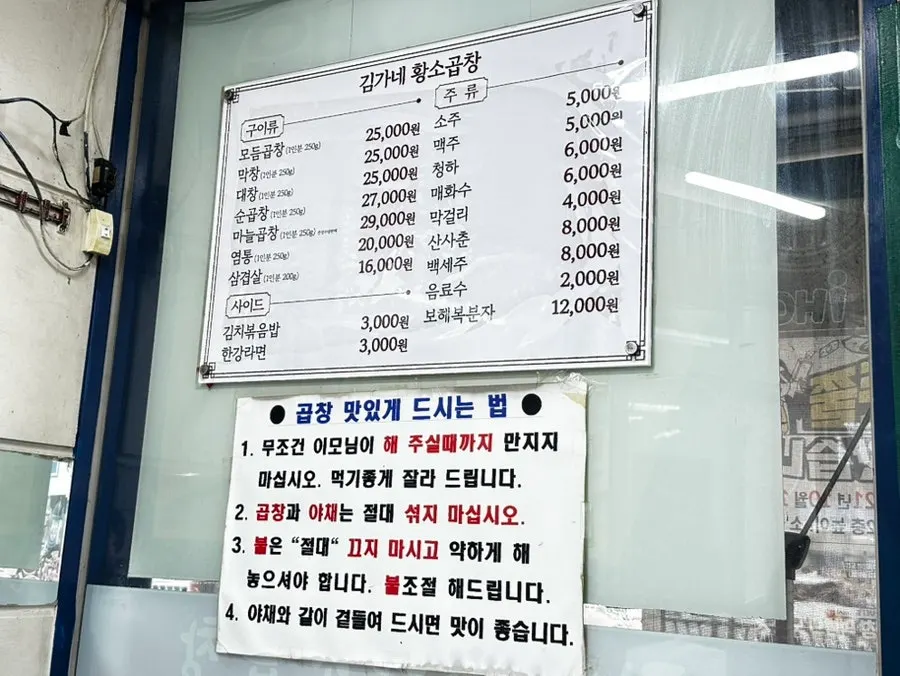 김가네 황소곱창
구이류
모듬곱창 (1인분 250g) 25,000원
막창 (1인분 250g) 25,000원
대창 (1인분 250g) 25,000원
순곱창 (1인분 250g) 27,000원
마늘곱창 (1인분 250g) 29,000원
염통 (1인분 250g) 20,000원
삼겹살 (1인분 200g) 16,000원
사이드
김치볶음밥 3,000원
한강라면 3,000원
주류
소주 5,000원
맥주 5,000원
청하 6,000원
매화수 6,000원
막걸리 4,000원
산사춘 8,000원
백세주 8,000원
음료수 2,000원
보해복분자 12,000원
● 곱창 맛있게 드시는 법 ●
1. 무조건 이모님이 해 주실때까지 만지지
마십시오. 먹기좋게 잘라 드립니다.
2. 곱창과 야채는 절대 섞지 마십시오.
3. 불은 “절대“ 끄지 마시고 약하게 해
놓으셔야 합니다. 불조절 해드립니다.
4. 야채와 같이 곁들여 드시면 맛이 좋습니다.